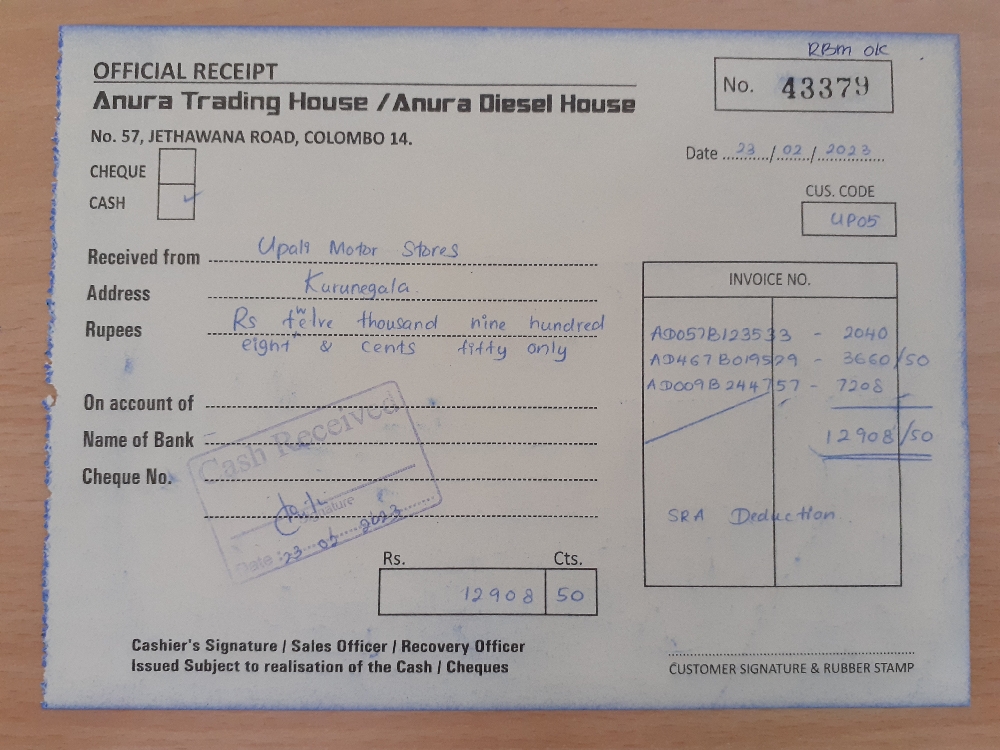 RBm ok
OFFICIAL RECEIPT
No. 43379
Anura Trading House / Anura Diesel House
No. 57, JETHAWANA ROAD, COLOMBO 14.
Date 23 / 02 / 2023
CHEQUE
CASH ✓
CUS. CODE
UP05
Received from Upali Motor Stores
Address Kurunegala.
Rupees Rs twelve thousand nine hundred
eight & cents fifty only
On account of
Name of Bank
Cheque No.
INVOICE NO.
AD057B123533 - 2040
AD467B019529 - 3660/50
AD009B244757 - 7208
12908/50
SRA Deduction
Cash Received
Signature
Date : 23 02 2023
Rs. Cts.
12908 50
Cashier's Signature / Sales Officer / Recovery Officer
Issued Subject to realisation of the Cash / Cheques
CUSTOMER SIGNATURE & RUBBER STAMP